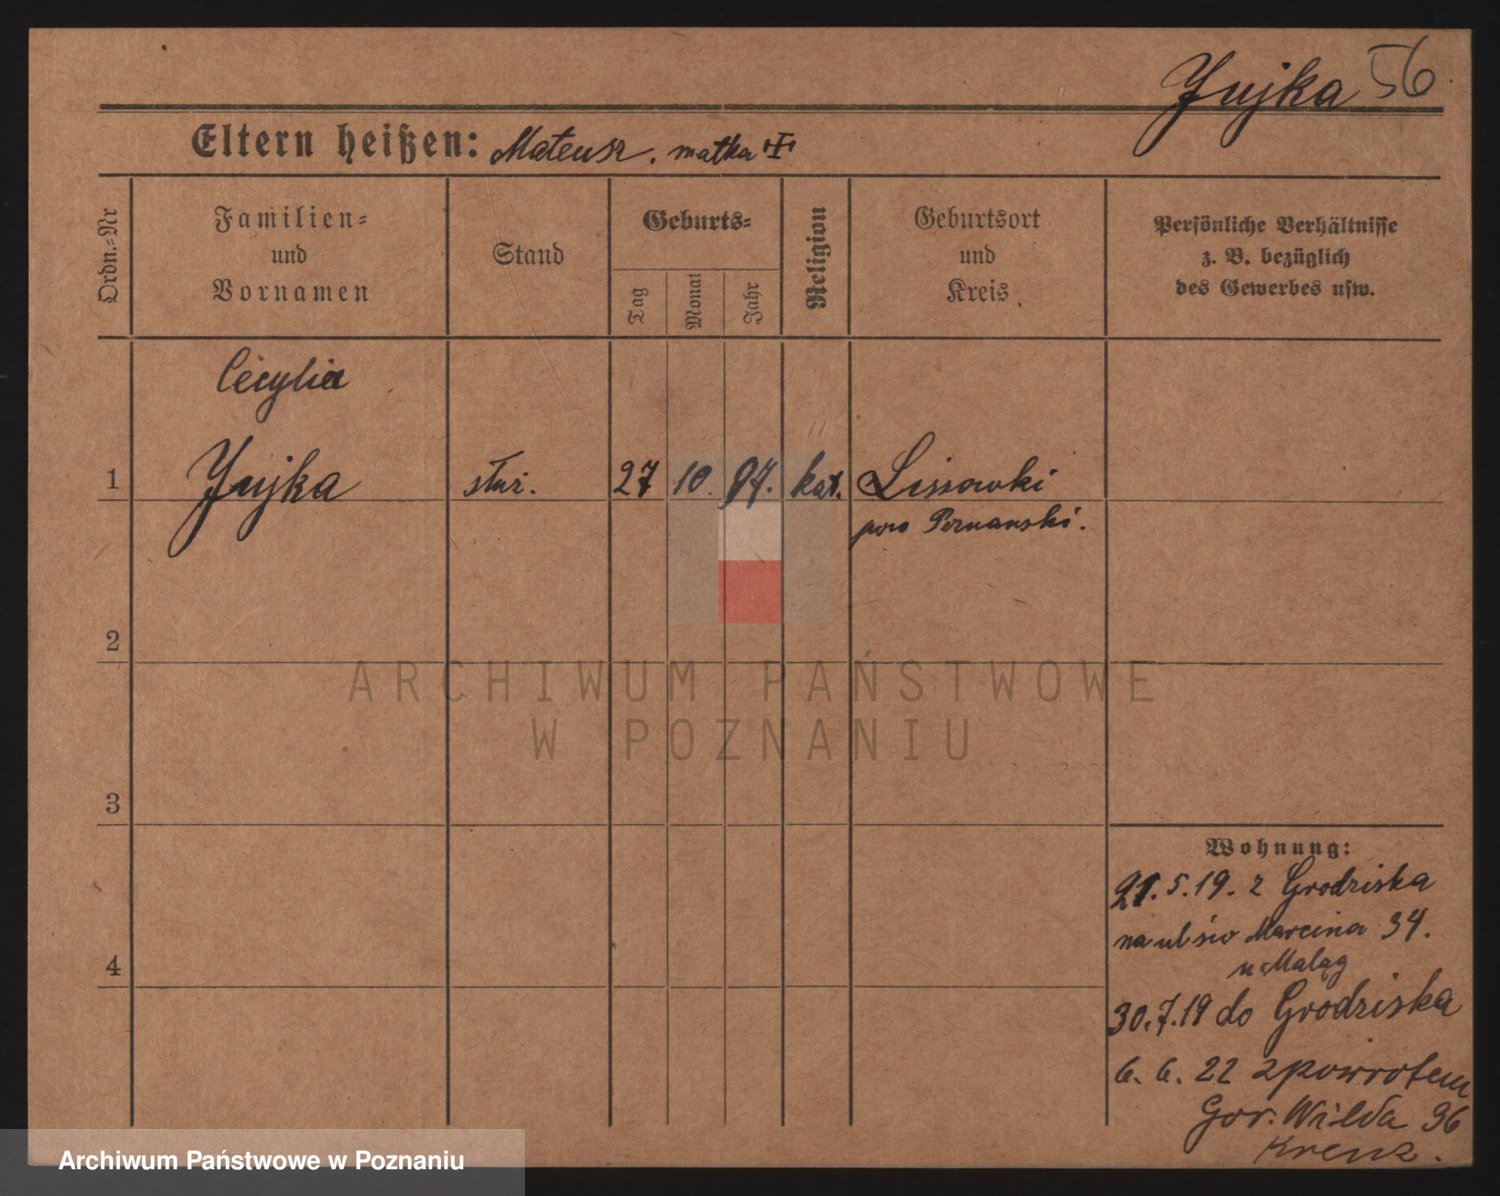 Jujka 56
Eltern heißen: Mateusz. matka
Ordn.-Nr
Familien-
und
Vornamen
Stand
Geburts-
Tag
Monat
Jahr
Religion
Geburtsort
und
Kreis
Persönliche Verhältnisse
z. B. bezüglich
des Gewerbes usw.
Cecylia
1 Jujka służ. 27 10. 97. kat. Lissowki
pow Poznański.
2
ARCHIWUM PAŃSTWOWE
W POZNANIU
3
Wohnung:
21.5.19. z Grodziska
na ul św Marcina 34.
4
u Maląg
30.7.19 do Grodziska
6. 6. 22 zpowrotem
Gor. Wilda 36
Krenz.
Archiwum Państwowe w Poznaniu